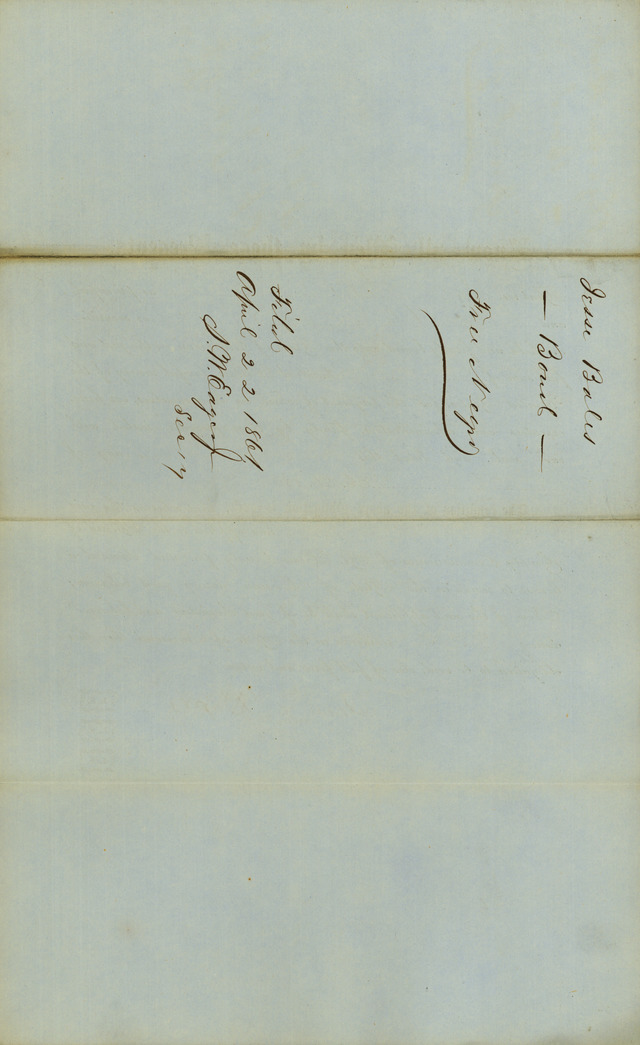 Jesse Bates
— Bond —
Free Negro
Filed
April 22 1861
S. W. Eager Jr
Secry